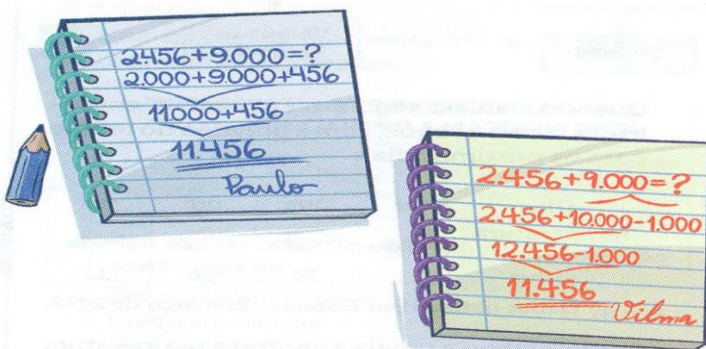 2.456+9.000=?
2.000+9.000+456
11.000+456
11.456
Paulo
2.456+9.000=?
2.456+10.000-1.000
12.456-1.000
11.456
Vilma